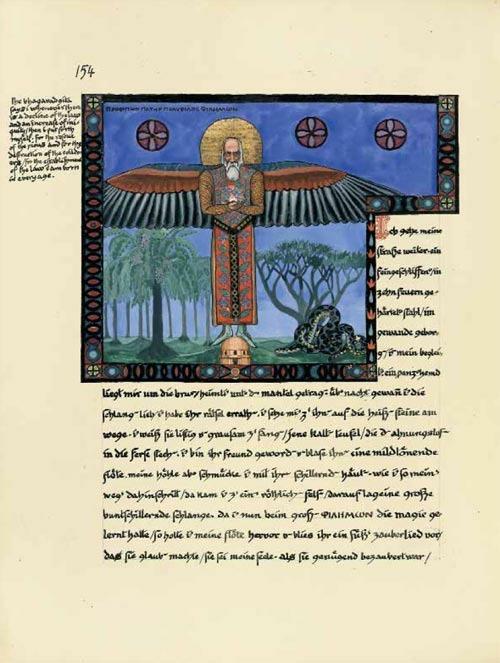 154
the bhagavadgita
says: whenever there
is a decline of the law
and an increase of ini-
quity / then i put forth
myself. For the rescue
of the pious and for the
destruction of the evildo-
ers / for the establishment
of the law i am born
in every age.
ΠΡΟΦΗΤΩΝ ΠΑΤΗΡ ΠΟΛΥΦΙΛΟΣ ΦΙΛΗΜΩΝ
Ich gehe meine
straße weiter. ein
feingeschliffen / in
zehn feuern ge-
härtet stahl / im
gewande gebor-
g / ist mein beglei-
t. ein panzerhemd
liegt mir um die brust / heimli unt d mantel getrag. üb nacht gewan i die
schlang lieb i habe ihr räthsel errath. i setze mi z' ihn auf die heiß steine am
wege. i weiß sie listig u grausam z' fang / jene kalt teufel / die d ahnungslos
in die ferse stech. i bin ihr freund geword u blase ihn eine mildtönende
flöte. meine höhle ab schmücke i mit ihr schillernd häut. wie i so mein
weg dahinschritt / da kam i z' ein röthlich fels / darauf lag eine große
buntschillernde schlange. da i nun beim groß ΦΙΛΗΜΩΝ die magie ge-
lernt hatte / so holte i meine flöte hervor u blies ihr ein süß zauberlied vor /
das sie glaub machte / sie sei meine seele. als sie genügend bezaubert war /